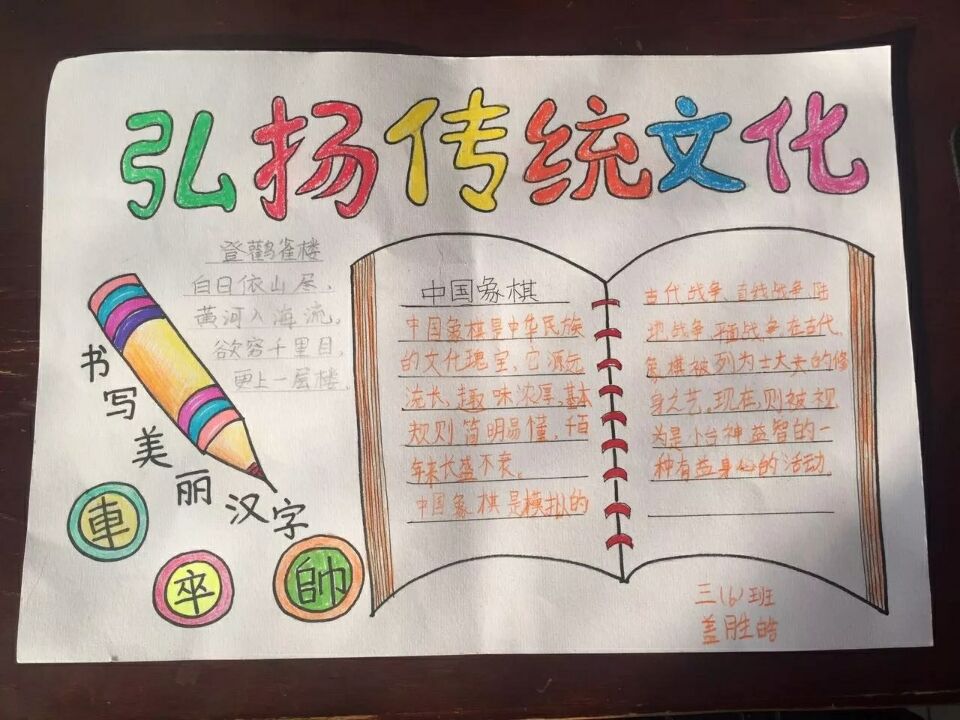 弘扬传统文化
登鹳雀楼
白日依山尽,
黄河入海流,
欲穷千里目,
更上一层楼.
书写美丽汉字
車
卒
帥
中国象棋
中国象棋是中华民族
的文化瑰宝,它源远
流长,趣味浓厚,基本
规则简明易懂,千百
年来长盛不衰。
中国象棋是模拟的
古代战争、直线战争、陆
地战争、平面战争在古代,
象棋被列为士大夫的修
身之艺,现在,则被视
为是个怡神益智的一
种有益身心的活动.
三(6)班
盖胜皓